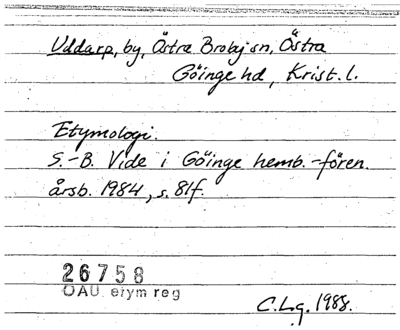 Uddarp, by, Östra Broby sn, Östra
Göinge hd, Krist. l.
Etymologi.
S.-B. Vide i Göinge hemb.-fören.
årsb. 1984, s. 81f.
26758
OAU etym reg
C.Lg. 1988.